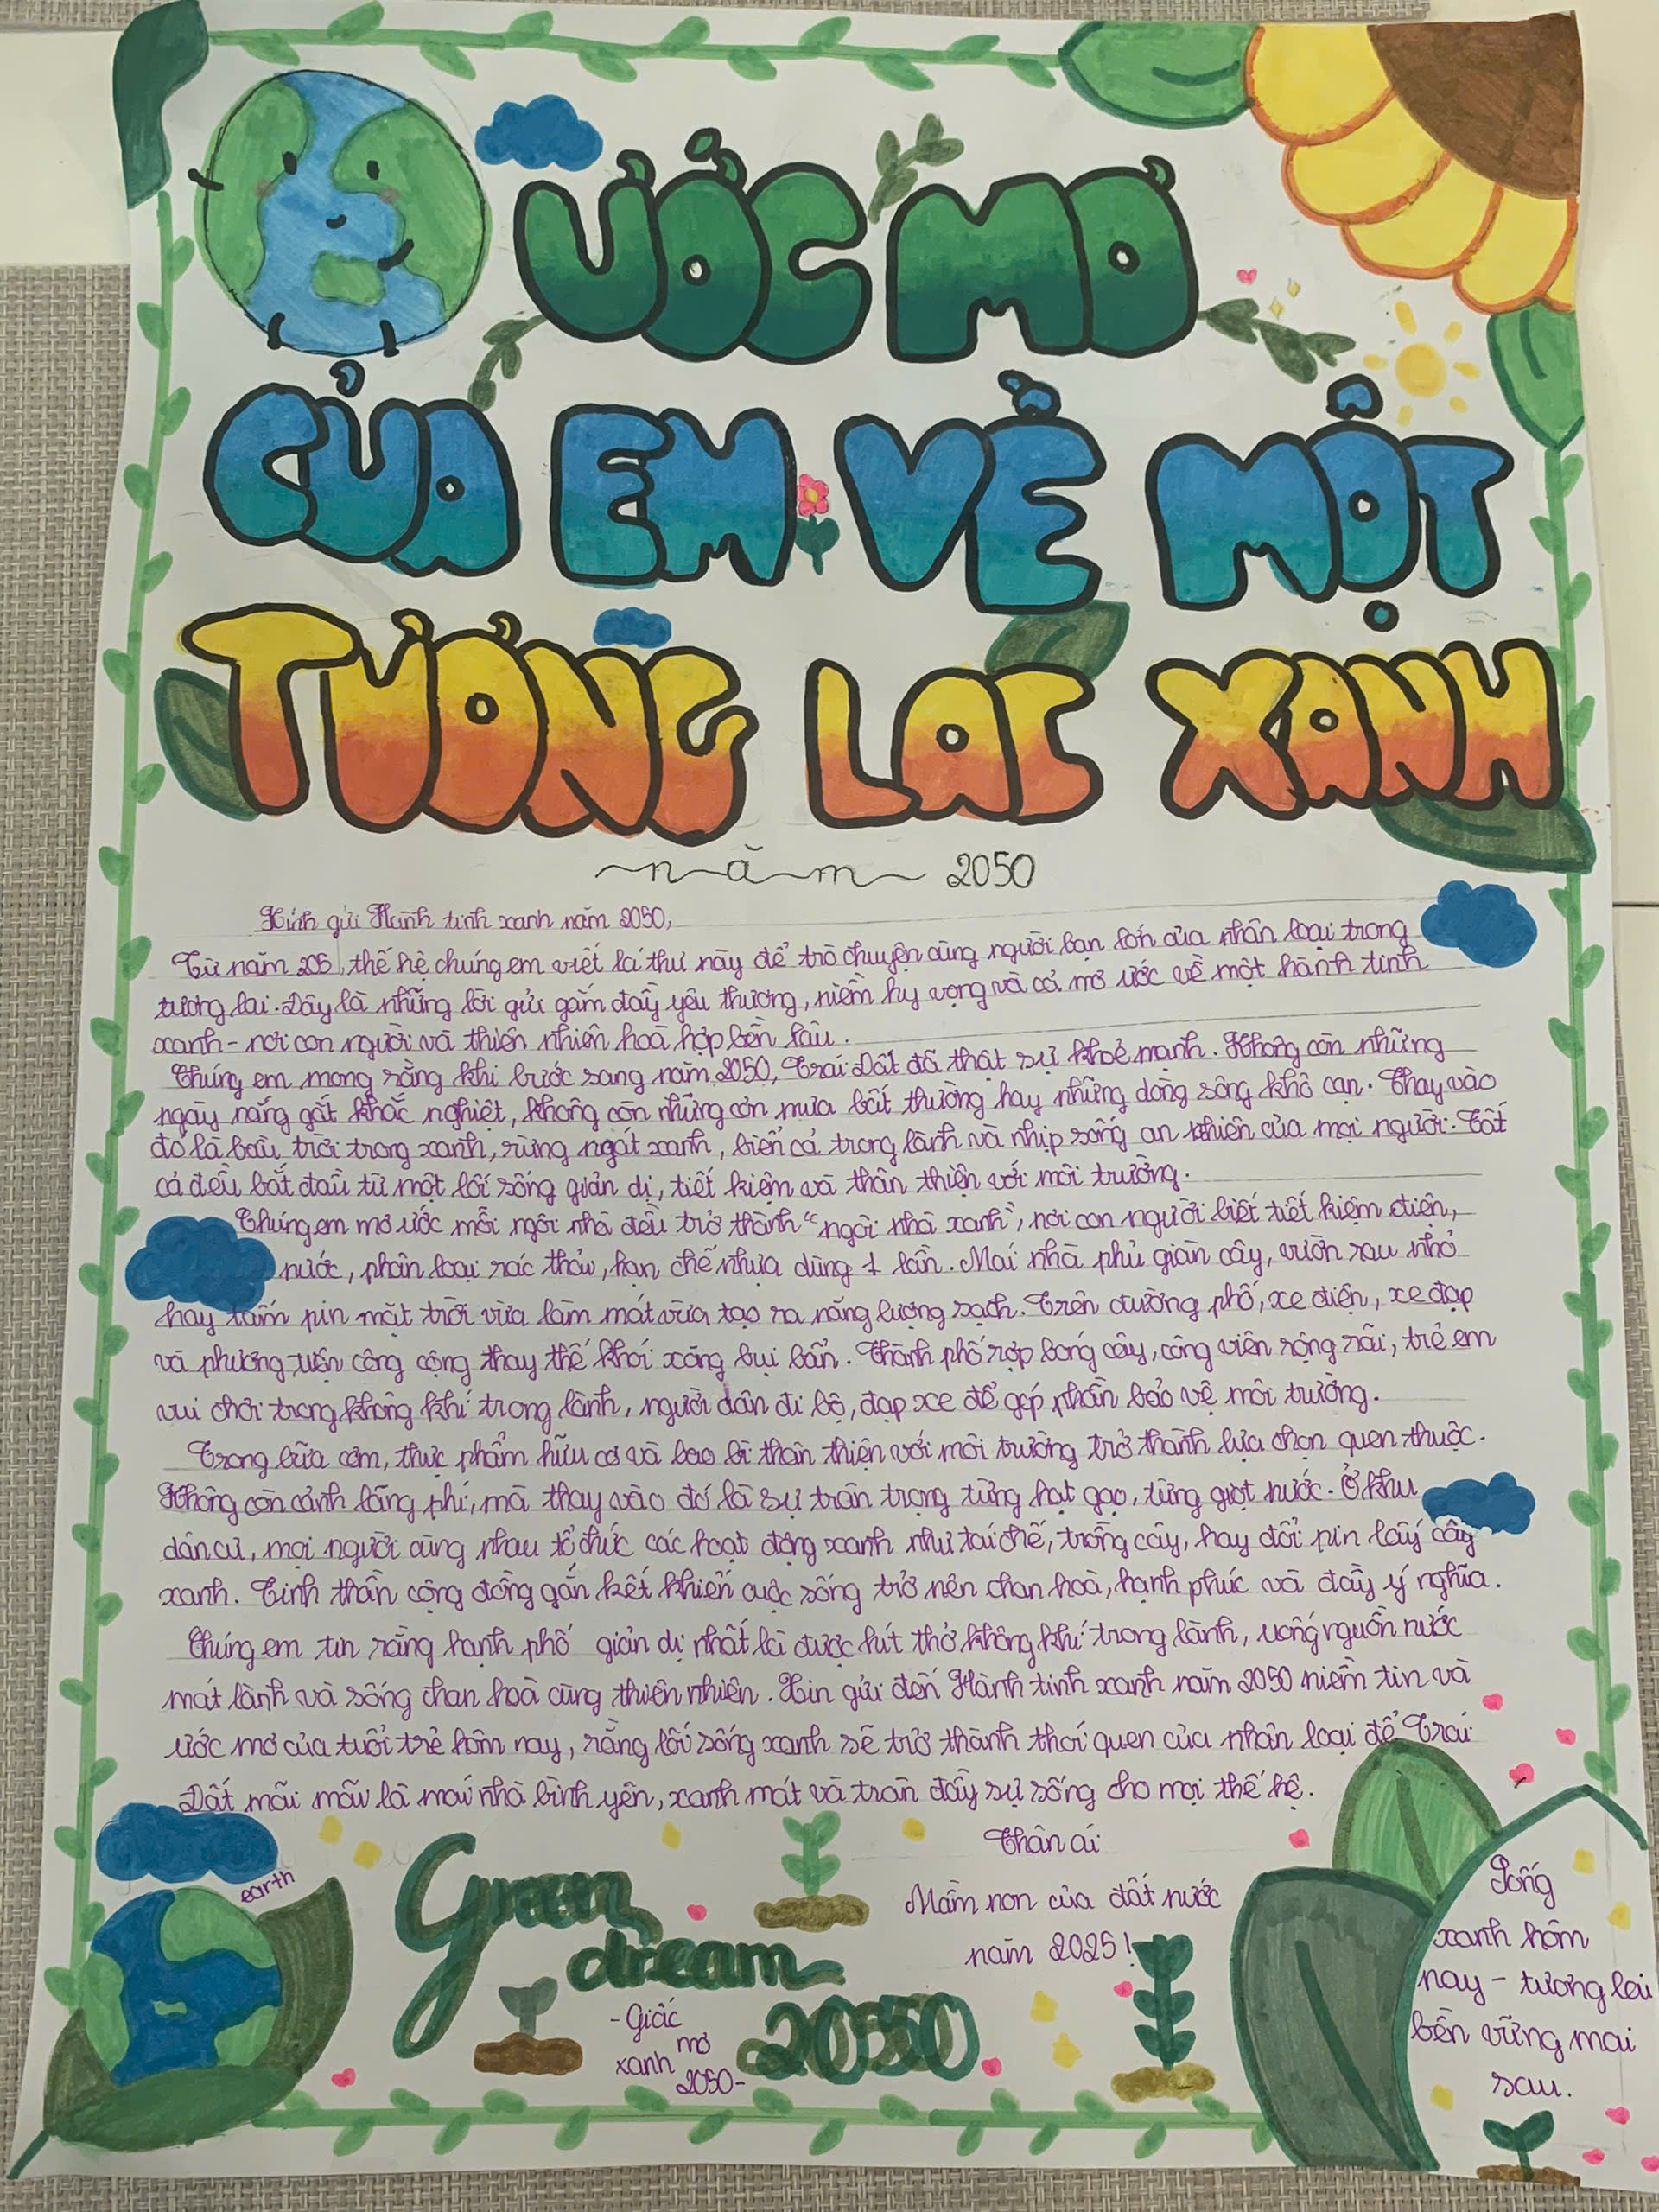 ƯỚC MƠ
CỦA EM VỀ MỘT
TƯƠNG LAI XANH
năm 2050
Kính gửi Hành tinh xanh năm 2050,
Từ năm 205, thế hệ chúng em viết lá thư này để trò chuyện cùng người bạn lớn của nhân loại trong
tương lai. Đây là những lời gửi gắm đầy yêu thương, niềm hy vọng và cả mơ ước về một hành tinh
xanh - nơi con người và thiên nhiên hoà hợp bền lâu.
Chúng em mong rằng khi bước sang năm 2050, Trái Đất đã thật sự khoẻ mạnh. Không còn những
ngày nắng gắt khắc nghiệt, không còn những cơn mưa bất thường hay những dòng sông khô cạn. Thay vào
đó là bầu trời trong xanh, rừng ngát xanh, biển cả trong lành và nhịp sống an nhiên của mọi người. Tất
cả đều bắt đầu từ một lối sống giản dị, tiết kiệm và thân thiện với môi trường.
Chúng em mơ ước mỗi ngôi nhà đều trở thành "ngôi nhà xanh", nơi con người biết tiết kiệm điện,
nước, phân loại rác thải, hạn chế nhựa dùng 1 lần. Mái nhà phủ giàn cây, vườn rau nhỏ
hay tấm pin mặt trời vừa làm mát vừa tạo ra năng lượng sạch. Trên đường phố, xe điện, xe đạp
và phương tiện công cộng thay thế khói xăng bụi bẩn. Thành phố rợp bóng cây, công viên rộng rãi, trẻ em
vui chơi trong không khí trong lành, người dân đi bộ, đạp xe để góp phần bảo vệ môi trường.
Trong bữa cơm, thực phẩm hữu cơ và bao bì thân thiện với môi trường trở thành lựa chọn quen thuộc.
Không còn cảnh lãng phí, mà thay vào đó là sự trân trọng từng hạt gạo, từng giọt nước. Ở khu
dân cư, mọi người cùng nhau tổ chức các hoạt động xanh như tái chế, trồng cây, hay đổi pin lấy cây
xanh. Tinh thần cộng đồng gắn kết khiến cuộc sống trở nên chan hoà, hạnh phúc và đầy ý nghĩa.
Chúng em tin rằng hạnh phố giản dị nhất là được hít thở không khí trong lành, uống nguồn nước
mát lành và sống chan hoà cùng thiên nhiên. Xin gửi đến Hành tinh xanh năm 2050 niềm tin và
ước mơ của tuổi trẻ hôm nay, rằng lối sống xanh sẽ trở thành thói quen của nhân loại để Trái
Đất mãi mãi là mái nhà bình yên, xanh mát và tràn đầy sự sống cho mọi thế hệ.
Thân ái
Mầm non của đất nước
năm 2025!
earth
Green
dream
2050
- Giấc
mơ
xanh
2050-
Sống
xanh hôm
nay - tương lai
bền vững mai
sau.